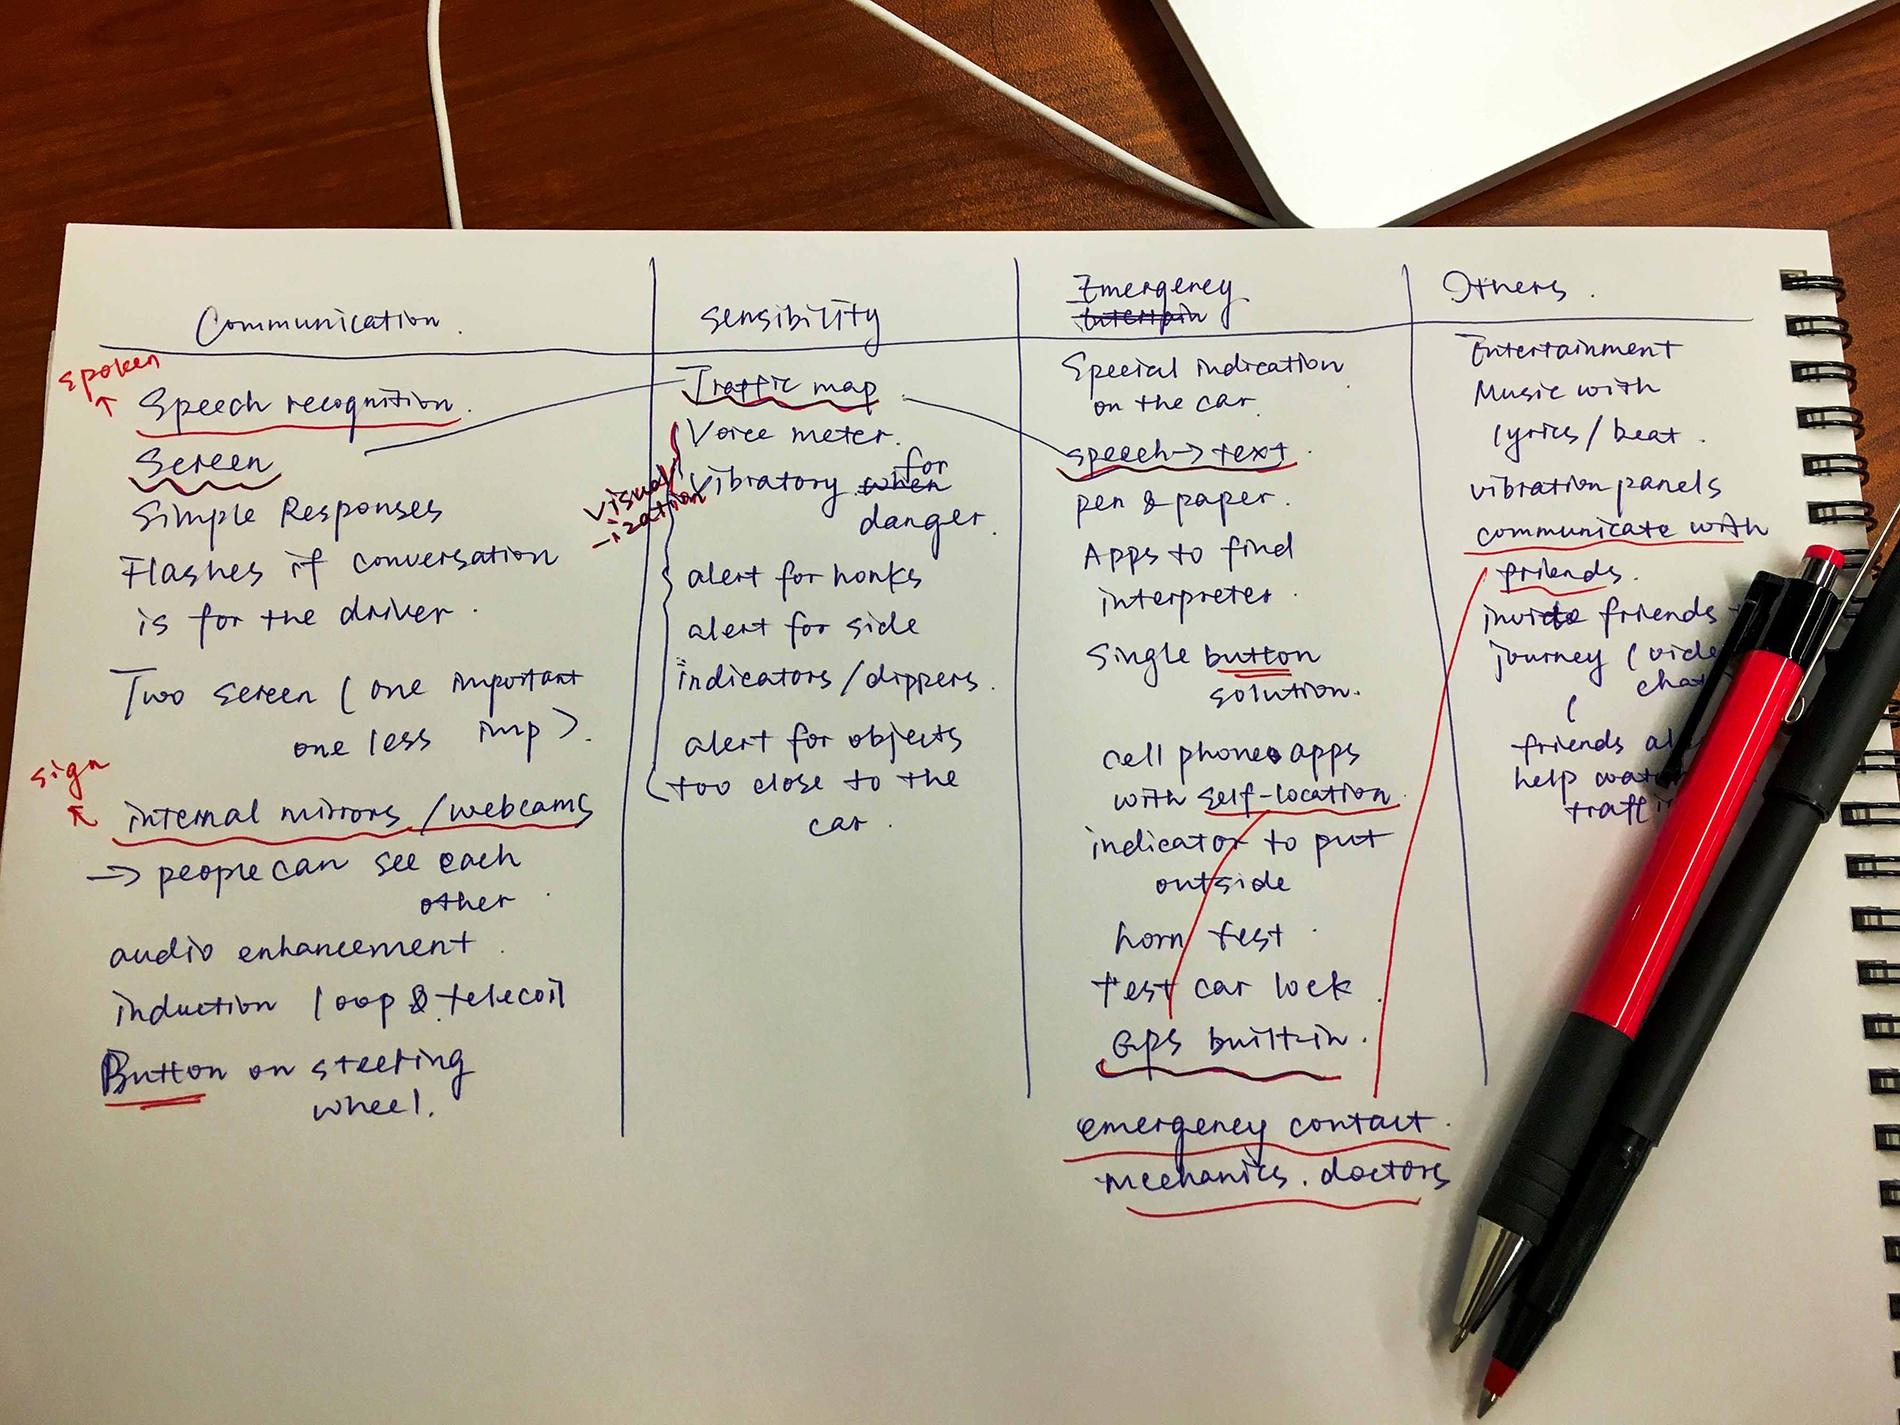 Communication.
spoken
Speech recognition.
Screen
Simple Responses
Flashes if conversation
is for the driver.
Two screen (one important
one less imp).
sign
internal mirrors / webcams
→ people can see each
other.
audio enhancement.
induction loop & telecoil
Button on steering
wheel.
sensibility
Traffic map
Voice meter.
visual
-ization
for
Vibratory when
danger.
alert for honks
alert for side
indicators / dippers.
alert for objects
too close to the
car.
Emergency
Special indication
on the car.
speech → text.
pen & paper.
Apps to find
interpreter.
Single button
solution.
cell phone apps
with self-location
indicator to put
outside
horn test.
test car lock.
GPS built-in.
emergency contact.
mechanics. doctors
Others.
Entertainment
Music with
lyrics / beat.
vibration panels
communicate with
friends.
invite friends
journey (vide
chat
(
friends
help
traff